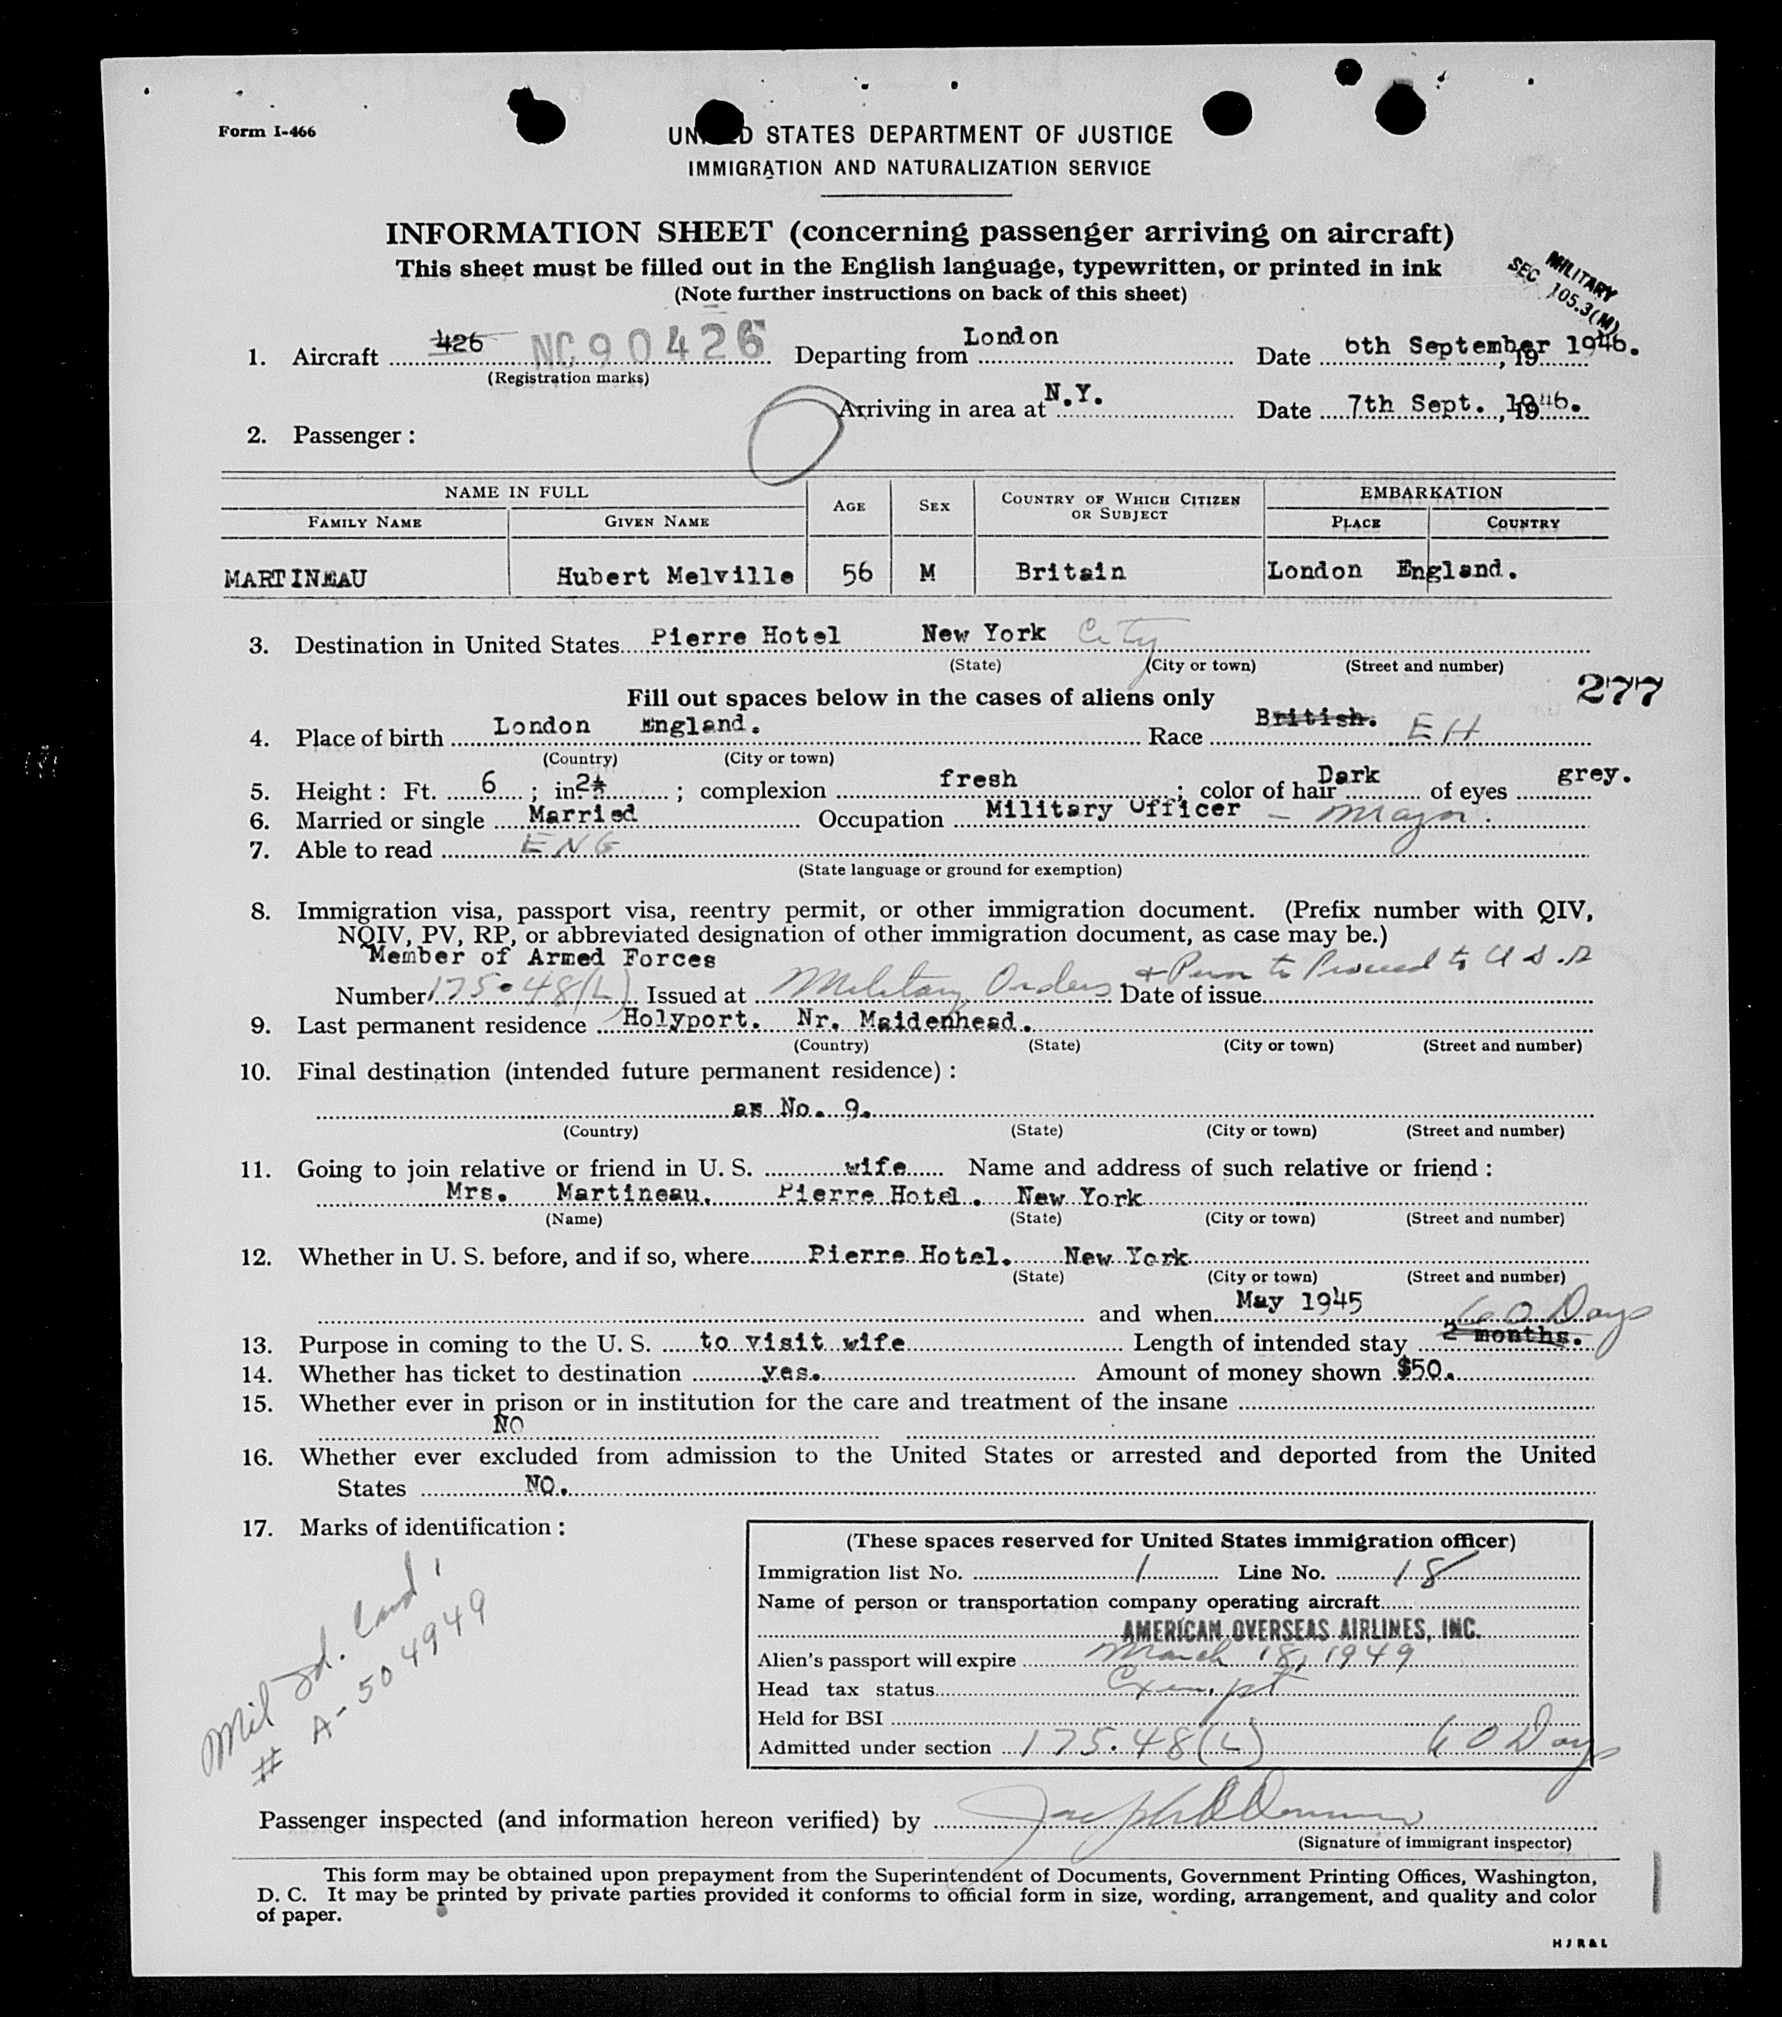 Form I-466
UNITED STATES DEPARTMENT OF JUSTICE
IMMIGRATION AND NATURALIZATION SERVICE
INFORMATION SHEET (concerning passenger arriving on aircraft)
This sheet must be filled out in the English language, typewritten, or printed in ink
(Note further instructions on back of this sheet)
MILITARY
SEC 105.3(M)
1. Aircraft 426 NC90426 Departing from London Date 6th September, 1946.
(Registration marks)
Arriving in area at N.Y. Date 7th Sept., 1946.
2. Passenger :
NAME IN FULL AGE SEX COUNTRY OF WHICH CITIZEN OR SUBJECT EMBARKATION
FAMILY NAME GIVEN NAME PLACE COUNTRY
MARTINEAU Hubert Melville 56 M Britain London England.
3. Destination in United States Pierre Hotel New York City
(State) (City or town) (Street and number)
Fill out spaces below in the cases of aliens only
277
4. Place of birth London England. Race British. EH
(Country) (City or town)
5. Height : Ft. 6 ; in. 2½ ; complexion fresh ; color of hair Dark of eyes grey.
6. Married or single Married Occupation Military Officer - Major.
7. Able to read ENG
(State language or ground for exemption)
8. Immigration visa, passport visa, reentry permit, or other immigration document. (Prefix number with QIV,
NQIV, PV, RP, or abbreviated designation of other immigration document, as case may be.)
Member of Armed Forces
Number 175.48(L) Issued at Military Orders & Perm to Proceed to U S A Date of issue
9. Last permanent residence Holyport. Nr. Maidenhead.
(Country) (State) (City or town) (Street and number)
10. Final destination (intended future permanent residence) :
as No. 9.
(Country) (State) (City or town) (Street and number)
11. Going to join relative or friend in U. S. wife Name and address of such relative or friend :
Mrs. Martineau. Pierre Hotel. New York
(Name) (State) (City or town) (Street and number)
12. Whether in U. S. before, and if so, where Pierre Hotel. New York
(State) (City or town) (Street and number)
and when May 1945
13. Purpose in coming to the U. S. to visit wife Length of intended stay 2 months. 60 Days
14. Whether has ticket to destination yes. Amount of money shown $50.
15. Whether ever in prison or in institution for the care and treatment of the insane
NO
16. Whether ever excluded from admission to the United States or arrested and deported from the United
States NO.
17. Marks of identification :
Mil Id. Card
# A-504949
(These spaces reserved for United States immigration officer)
Immigration list No. 1 Line No. 18
Name of person or transportation company operating aircraft
AMERICAN OVERSEAS AIRLINES, INC.
Alien's passport will expire March 18, 1949
Head tax status Exempt
Held for BSI
Admitted under section 175.48(L) 60 Days
Passenger inspected (and information hereon verified) by
(Signature of immigrant inspector)
This form may be obtained upon prepayment from the Superintendent of Documents, Government Printing Offices, Washington,
D. C. It may be printed by private parties provided it conforms to official form in size, wording, arrangement, and quality and color
of paper.
HJR&L